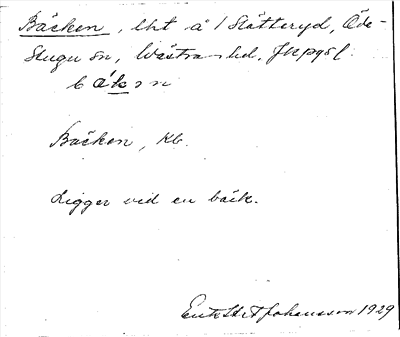 Bäcken, lht å / Slätteryd, Öde-
stugu sn, Västra hd, Jkpgs l.
bäkən
Bäcken, Kb.
Ligger vid en bäck.
Johansson 1929